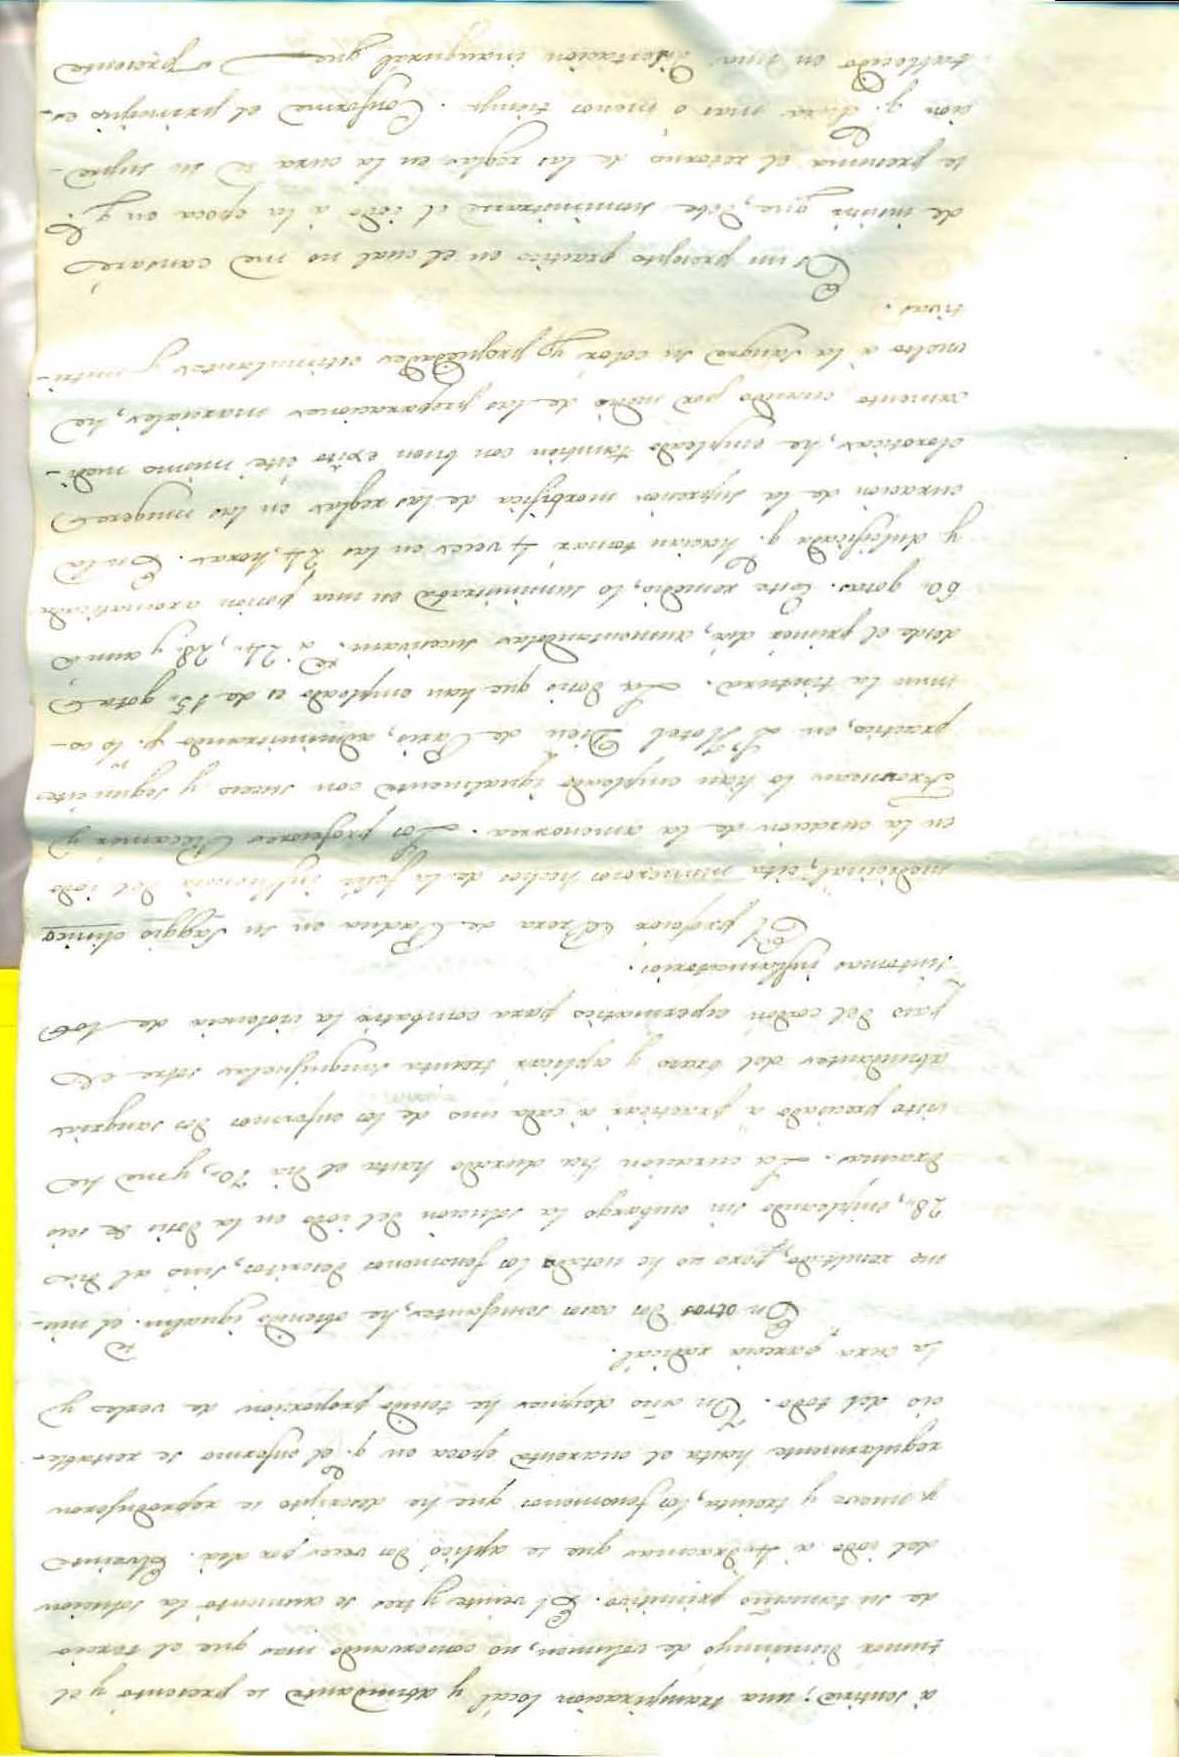 à sentirse; una transpiracion local y abundante se presentó y el
tumor disminuyo de volumen, no conservando mas que el tercio
de su tamaño primitivo. El veinte y tres se aumentó la solucion
del iodo à 4 dracmas que se aplicó dos veces por dia. El veinte
y nueve y treinta, los fenomenos que he descripto se reprodugeron
regularmente hasta el cuarenta epoca en q. el enfermo se restable-
ció del todo. Un año despues he tenido proporcion de verlos y
la cura parecia radical.
En otros dos casos semejantes, he obtenido igualm.te el mis-
mo resultado, pero no he notado los fenomenos descritos, sino al dia
28,, empleando sin embargo la solucion del iodo en la dosis de seis
dracmas. La curacion ha durado hasta el dia 70,, y me he
visto precisado à practicar à cada uno de los enfermos dos sangrias
abundantes del brazo y aplicar treinta sanguijuelas sobre el
paso del cordón espermatico para combatir la violencia de los
sintomas inflamatorios.
El profesor Brera de Padua en su Saggio clinico
medicinal, cita numerosos hechos de la feliz influencia del iodo
en la curacion de la amenorrea. Los profesores Recamier y
lo han empleado igualmente con suceso y seguimiento
practico, en L'Hotel Dieu de Paris, administrando q. lo co-
mun la tintura. La dosis que han empleado es de 15,, gotas
desde el primer dia, aumentandolas sucesivam.te à 24,, 28,, y aun à
60,, gotas. Este remedio, lo suministraba en una pocion aromatizada
y dulcificada q. hacian tomar 4 veces en las 24,, horas. En la
curacion de la supresion morbifica de las reglas en las mugeres
cloroticas, he empleado tambien con buen exito este mismo medi-
camento, cuando por medio de las preparaciones marciales, he
vuelto à la sangre su color y propiedades estimulantes y nutri-
tivas.
Es un precepto practico en el cual no me cansaré
de insistir que, debe suministrarse el iodo à la epoca en q.
se presuma el retorno de las reglas en la cura de su supre-
sion q. dura mas o menos tiempo. Conforme el principio es-
tablecido en una disertacion inaugural que presenté